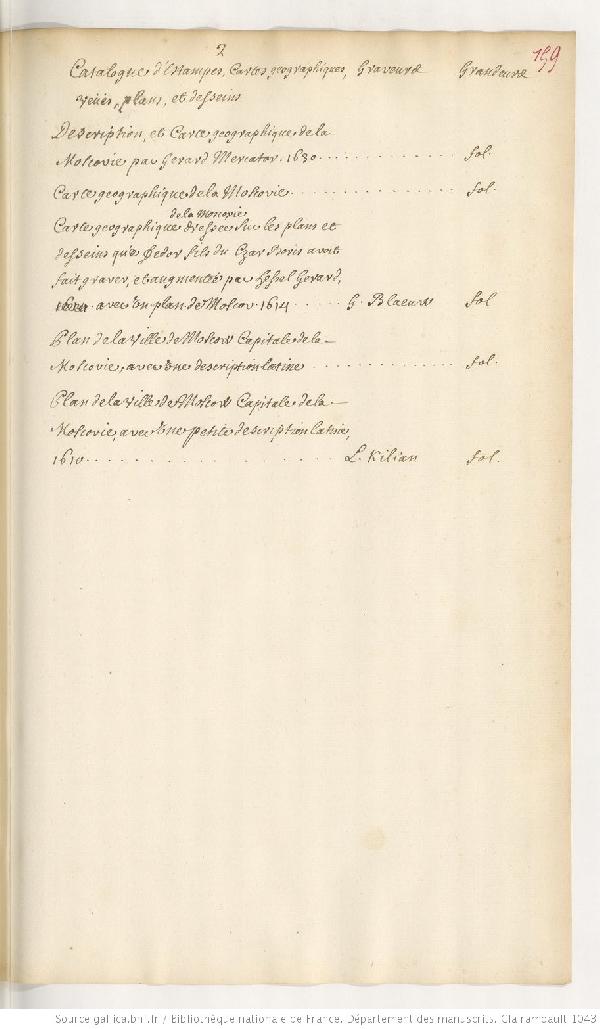 2
159
Catalogue d'Estampes, Cartes geographiques, Graveurs Grandeurs
veües, plans, et desseins
Description, et Carte geographique de la
Moscovie par Gerard Mercator. 1630 . . . . . . . . . . . . . . . fol.
Carte geographique de la Moscovie . . . . . . . . . . . . . . . fol.
de la Moscovie
Carte geographique dressee sur les plans et
desseins que Fedor fils du Czar Boris avoit
fait graver, et augmentée par Hessel Gerard,
avec un plan de Moscov. 1614 . . . . . G. Blaeuw fol
Plan de la Ville de Moscow Capitale de la
Moscovie, avec une description latine . . . . . . . . . . . . . fol.
Plan de la Ville de Moscow Capitale de la
Moscovie, avec une petite description latine,
1610 . . . . . . . . . . . . . . . . . . . L. Kilian fol.
Source gallica.bnf.fr / Bibliothèque nationale de France. Département des manuscrits. Clairambault 1043